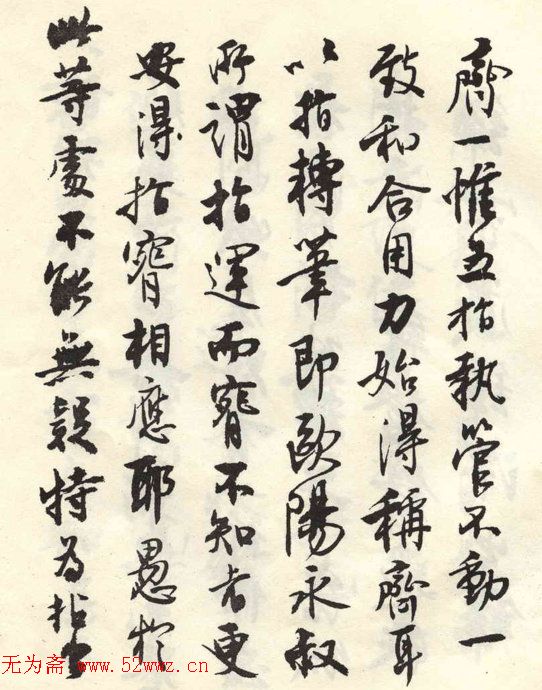 齊一惟五指執管不動一
致和合用力始得稱齊耳
以指轉筆即歐陽永叔
所謂指運而腕不知者更
安得指腕相應耶愚於
此等處不能無疑特為指出
无为斋 www.52wwz.cn